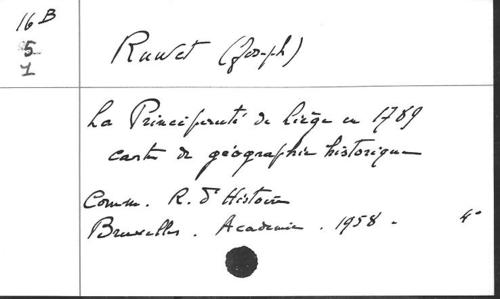 16 B
5
1
Ruwet (Joseph)
La Principauté de Liège en 1789
carte de géographie historique
Comm. R. d'Histoire
Bruxelles. Academie. 1958. 4°